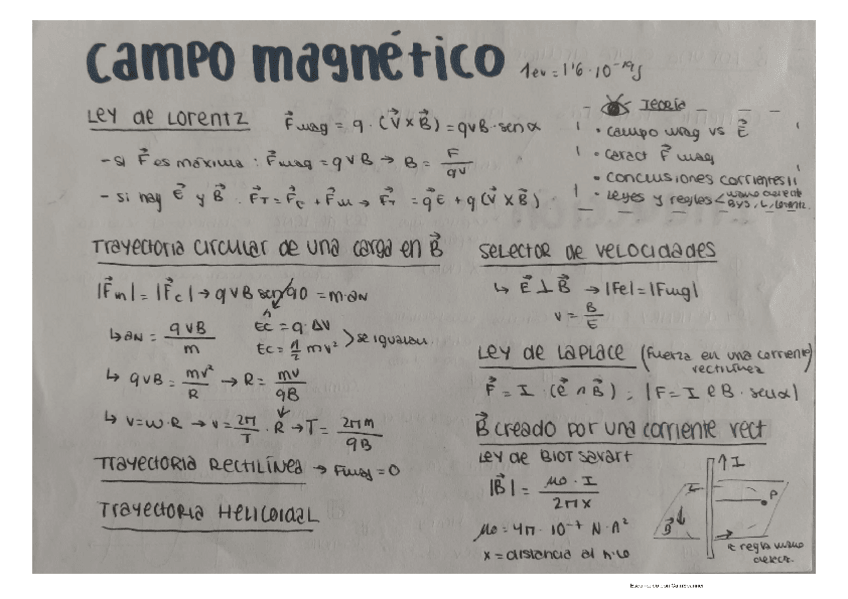 campo magnético 1ev = 1'6 · 10⁻¹⁹ J
Ley de Lorentz F⃗mag = q · (V⃗ x B⃗) = qvB · sen α
- si F⃗ es máxima : F⃗mag = qvB → B = F/qv
- si hay E⃗ y B⃗ . F⃗T = F⃗e + F⃗m → F⃗T = qE⃗ + q(V⃗ x B⃗)
Teoría
• campo mag vs E⃗
• caract F⃗ mag
• conclusiones corrientes II
• Leyes y reglas < mano derecha
BYS, L, Lorentz.
Trayectoria circular de una carga en B⃗
|F⃗m| = |F⃗c| → qvB sen 90 = m · aN
↳ aN = qvB/m
EC = q · ΔV
EC = 1/2 mv² > se igualan
↳ qvB = mv²/R → R = mv/qB
↳ v = ω · R → v = 2π/T · R → T = 2πm/qB
Trayectoria Rectilínea → Fmag = 0
Trayectoria Helicoidal
Selector de velocidades
↳ E⃗ ⊥ B⃗ → |Fe| = |Fmag|
v = B/E
Ley de Laplace (fuerza en una corriente)
rectilínea
F⃗ = I · (ℓ⃗ ∧ B⃗) ; |F = I ℓ B · senα|
B⃗ creado por una corriente rect
Ley de Biot Savart
|B⃗| = μ0 · I / 2πx
μ0 = 4π · 10⁻⁷ N · A²
x = distancia al hilo
↑ I
I
P
B⃗ ↓
regla mano
derech.
Escaneado con CamScanner